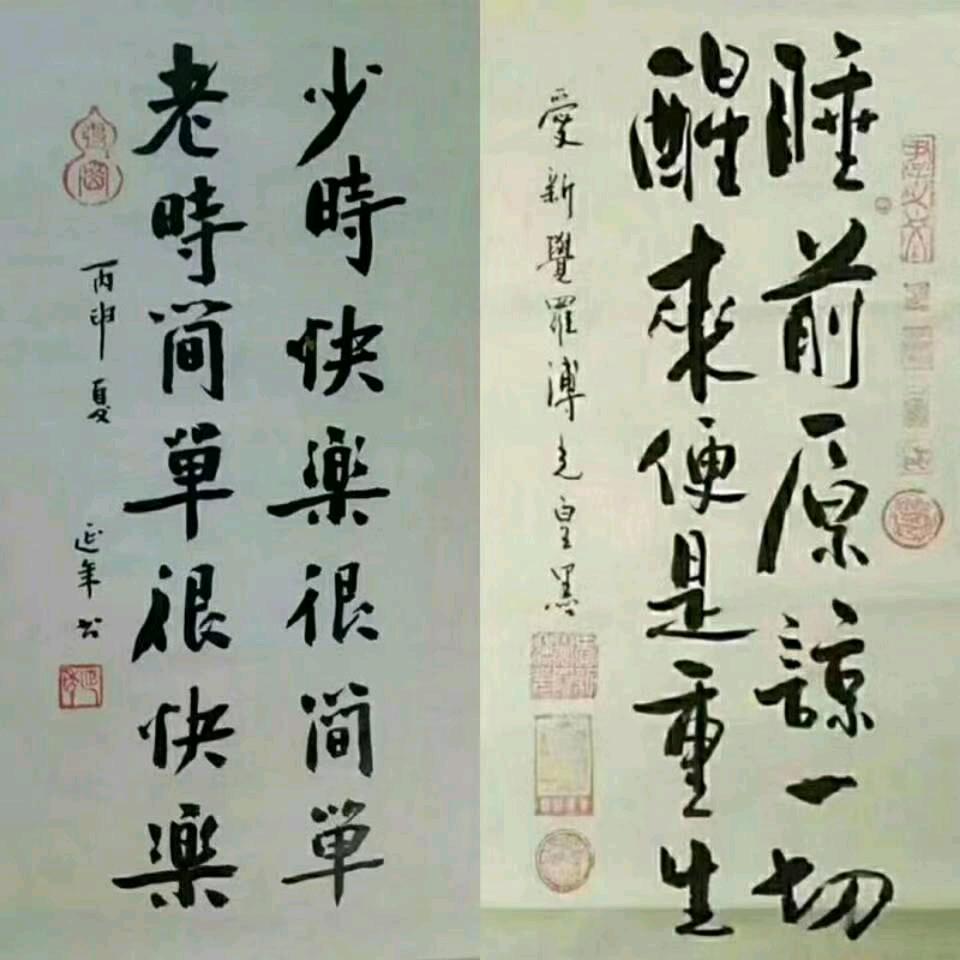 睡前原諒一切
醒來便是重生
愛新覺羅溥
少時快樂很简單
老時简單很快樂
丙申夏
延年書